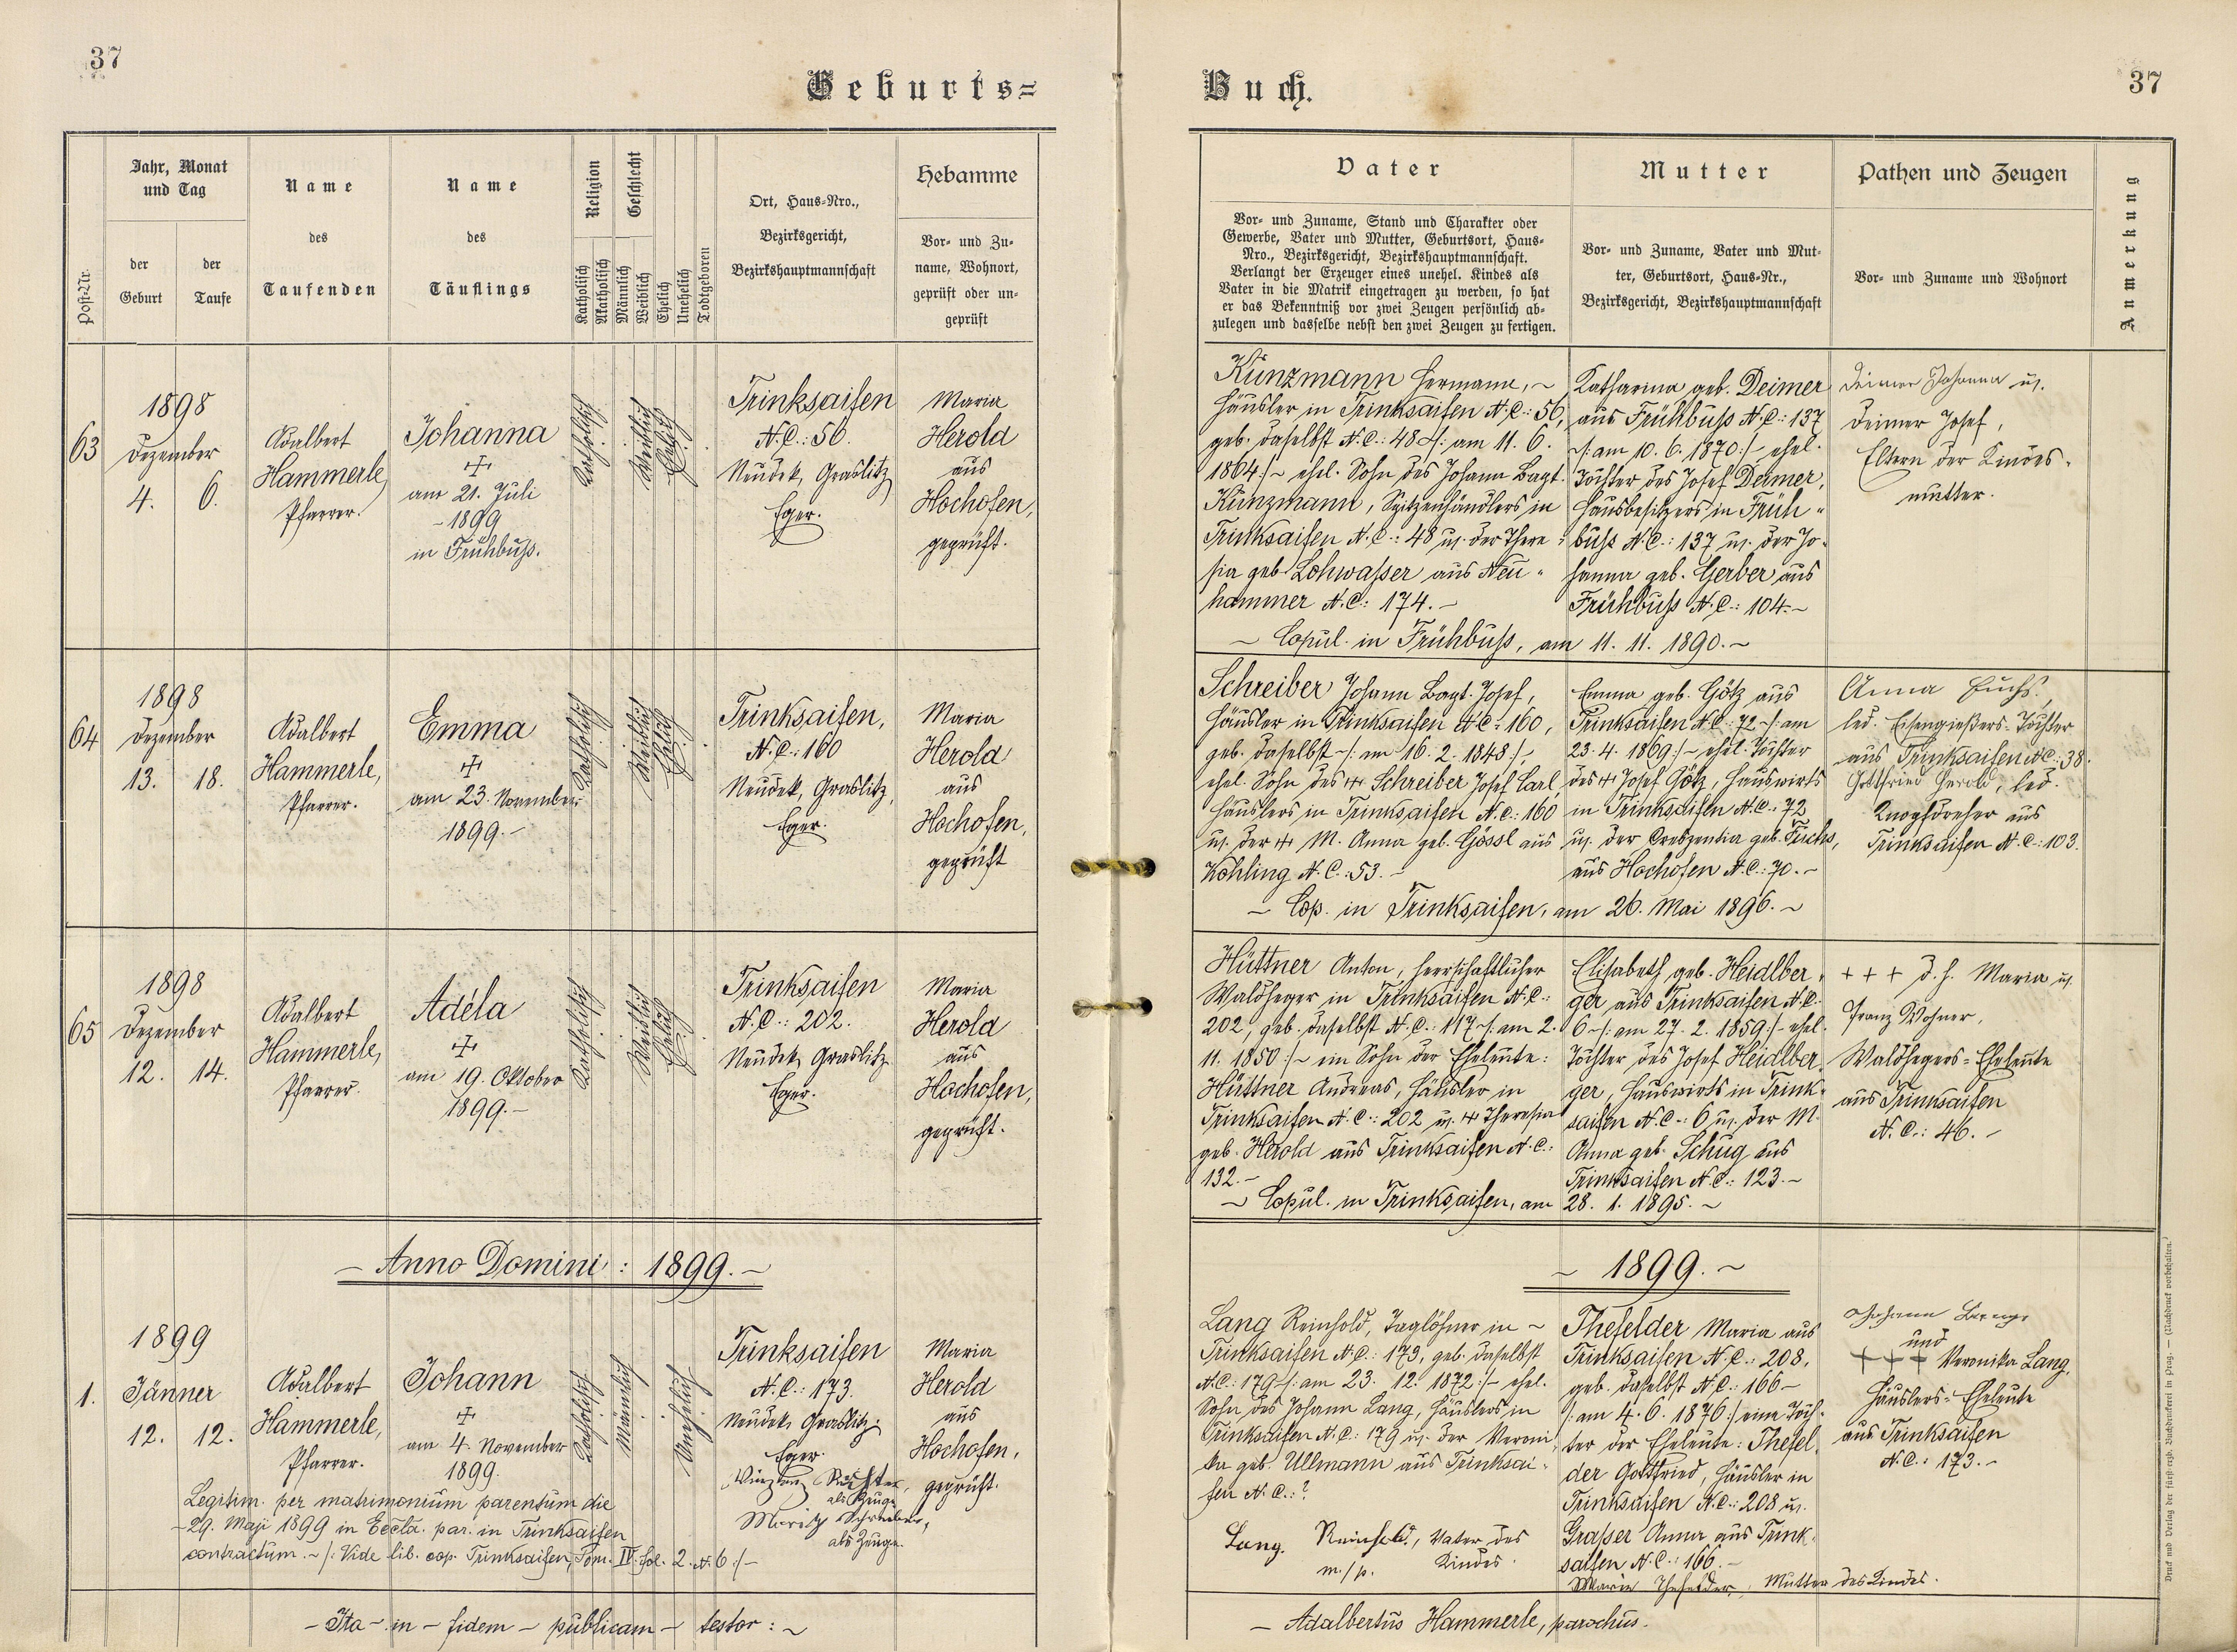 37
Geburts=
Jahr, Monat
und Tag
Name
des
Taufenden
Name
des
Täuflings
Religion
Geschlecht
Ort, Haus=Nro.,
Bezirksgericht,
Bezirkshauptmannschaft
Hebamme
Post=Nr.
der
Geburt
der
Taufe
Katholisch
Akatholisch
Männlich
Weiblich
Ehelich
Unehelich
Todtgeboren
Vor= und Zu=
name, Wohnort,
geprüft oder un=
geprüft
63
1898
Dezember
4. 6.
Adalbert
Hammerle,
Pfarrer.
Johanna
+
am 21. Juli
- 1899
in Frühbuss.
Katholisch
Weiblich
Ehelich
Trinksaifen
N.C.: 56.
Neudek, Graslitz
Eger.
Maria
Herold
aus
Hochofen,
geprüft.
64
1898
Dezember
13. 18.
Adalbert
Hammerle,
Pfarrer.
Emma
+
am 23. November
1899.-
Katholisch
Weiblich
Ehelich
Trinksaifen,
N.C.: 160
Neudek, Graslitz,
Eger.
Maria
Herold
aus
Hochofen,
geprüft
65
1898
Dezember
12. 14.
Adalbert
Hammerle,
Pfarrer.
Adéla
+
am 19. Oktober
1899.-
Katholisch
Weiblich
Ehelich
Trinksaifen
N.C.: 202.
Neudek, Graslitz
Eger.
Maria
Herold
aus
Hochofen,
geprüft.
- Anno Domini: 1899. -
1.
1899
Jänner
12. 12.
Adalbert
Hammerle,
Pfarrer.
Johann
+
am 4. November
1899.
Katholisch
Männlich
Unehelich
Trinksaifen
N.C.: 173.
Neudek, Graslitz,
Eger.
als Zeuge
Moritz Schreiber,
als Zeuge.
Maria
Herold
aus
Hochofen,
geprüft.
Legitim. per matrimonium parentum die
- 29. Maji 1899 in Eccla. par. in Trinksaifen
contractum. ~ /: Vide lib. cop. Trinksaifen, Tom. IV. fol. 2. N. 6 :/-
- Ita - in - fidem - publicam - testor : ~
Buch.
37
Vater
Vor= und Zuname, Stand und Charakter oder
Gewerbe, Vater und Mutter, Geburtsort, Haus=
Nro., Bezirksgericht, Bezirkshauptmannschaft.
Verlangt der Erzeuger eines unehel. Kindes als
Vater in die Matrik eingetragen zu werden, so hat
er das Bekenntniß vor zwei Zeugen persönlich ab=
zulegen und dasselbe nebst den zwei Zeugen zu fertigen.
Mutter
Vor= und Zuname, Vater und Mut=
ter, Geburtsort, Haus=Nr.,
Bezirksgericht, Bezirkshauptmannschaft
Pathen und Zeugen
Vor= und Zuname und Wohnort
Anmerkung
Kunzmann Hermann, ~
Häusler in Trinksaifen N.C.: 56,
geb. daselbst N.C.: 48 ~/: am 11. 6.
1864 :/~ ehel. Sohn des Johann Bapt.
Kunzmann, Spitzenhändlers in
Trinksaifen N.C.: 48 u. der There=
sia geb. Lohwasser aus Neu=
hammer N.C.: 174. -
Katharina geb. Deimer
aus Frühbuss N.C.: 137
~/: am 10. 6. 1870 :/- ehel.
Tochter des Josef Deimer,
Hausbesitzers in Früh=
buss N.C.: 137 u. der Jo=
hanna geb. Gerber aus
Frühbuss N.C.: 104. ~
Deimer Johanna u.
Deimer Josef,
Eltern der Kindes=
mutter.
~ Copul. in Frühbuss, am 11. 11. 1890. ~
Schreiber Johann Bapt. Josef,
Häusler in Trinksaifen N.C.: 160,
geb. daselbst ~/: am 16. 2. 1848 :/,
ehel. Sohn des + Schreiber Josef Carl,
Häuslers in Trinksaifen N.C.: 160
u. der + M. Anna geb. Gössl aus
Kohling N.C.: 53. -
Emma geb. Götz aus
Trinksaifen N.C.: 72 ~/: am
23. 4. 1869 :/~ ehel. Tochter
des + Josef Götz, Hauswirts
in Trinksaifen N.C.: 72
u. der Creszentia geb. Fuchs,
aus Hochofen N.C.: 70. ~
Anna Fuchs,
led. Eisengießers=Tochter
aus Trinksaifen N.C.: 38.
Gottfried Herold, led.
Knopfdreher aus
Trinksaifen N.C.: 103.
~ Cop. in Trinksaifen, am 26. Mai 1896. ~
Hüttner Anton, herrschaftlicher
Waldheger in Trinksaifen N.C.:
202, geb. daselbst N.C.: 117 ~/: am 2.
11. 1850 :/~ ein Sohn der Eheleute:
Hüttner Andreas, Häusler in
Trinksaifen N.C.: 202 u. + Theresia
geb. Herold aus Trinksaifen N.C.:
132. -
Elisabeth geb. Heidlber=
ger aus Trinksaifen N.C.
6 ~/: am 27. 2. 1859 :/- ehel.
Tochter des Josef Heidlber=
ger, Hauswirts in Trink=
saifen N.C.: 6 u. der M.
Anna geb. Schug aus
Trinksaifen N.C.: 123. ~
+ + + d. h. Maria u.
Franz Wohner,
Waldhegers=Eheleute
aus Trinksaifen
N.C.: 46. -
~ Copul. in Trinksaifen, am 28. 1. 1895. ~
~ 1899. ~
Lang Reinhold, Taglöhner in ~
Trinksaifen N.C.: 173, geb. daselbst
N.C.: 179 ~/: am 23. 12. 1872 :/- ehel.
Sohn des Johann Lang, Häuslers in
Trinksaifen N.C.: 179 u. der Veroni=
ka geb. Ullmann aus Trinksai=
fen N.C.: ?
Lang. Reinhold, Vater des
m./p. Kindes.
Thefelder Maria aus
Trinksaifen N.C.: 208,
geb. daselbst N.C.: 166 -
/: am 4. 6. 1876 :/ eine Toch=
ter der Eheleute: Thefel=
der Gottfried, Häusler in
Trinksaifen N.C.: 208 u.
Grasser Anna aus Trink=
saifen N.C.: 166. -
Marie Thefelder, Mutter des Kindes.
Johann
und
+ + + Veronika Lang,
Häuslers=Eheleute
aus Trinksaifen
N.C.: 173. -
- Adalbertus Hammerle, parochus.
Druck und Verlag der fürst-erzb. Buchdruckerei in Prag. — (Nachdruck vorbehalten.)